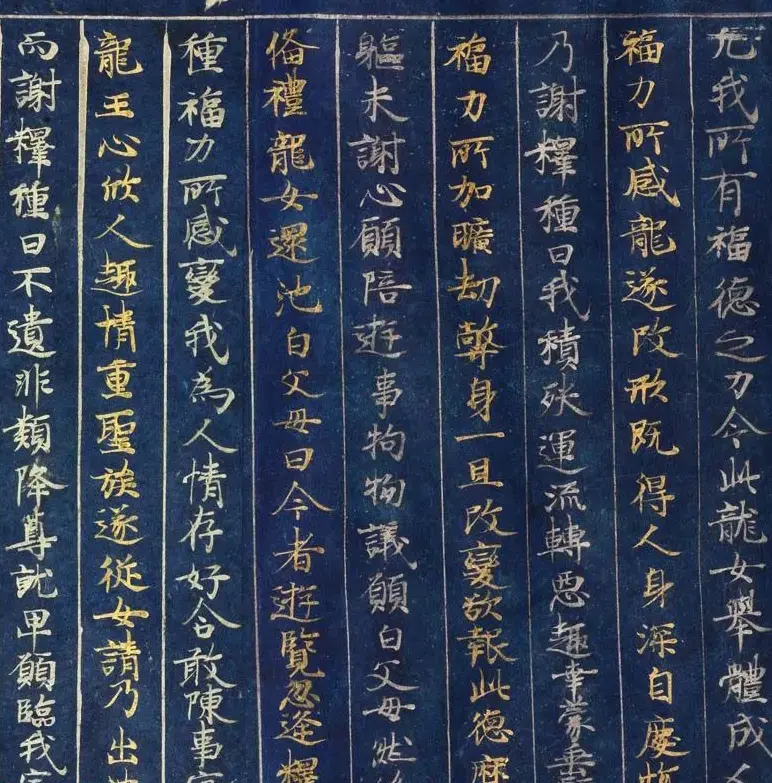 凡我所有福德之力令此龍女舉體成人
福力所感龍遂改形既得人身深自慶
乃謝釋種曰我積殃運流轉惡趣幸蒙垂
福力所加曠劫弊身一旦改變欲報此德
軀未謝心願陪遊事拘物議願白父母然
俻禮龍女還池白父母曰今者遊覽忽逢釋
種福力所感變我為人情存好合敢陳事
龍王心欣人趣情重聖族遂從女請乃出
而謝釋種曰不遺非類降尊就卑願臨我